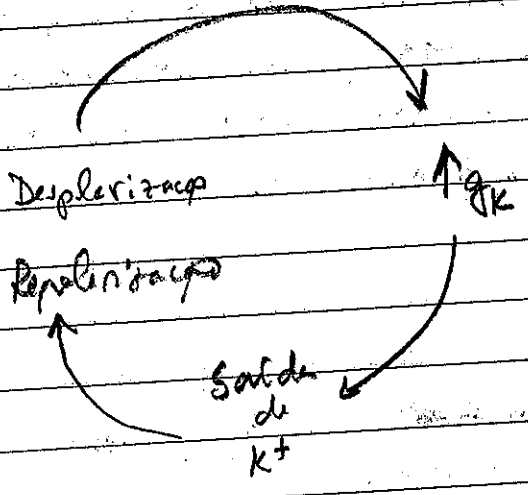 Despolarização
↑ gK
Repolarização
Saída
de
K+